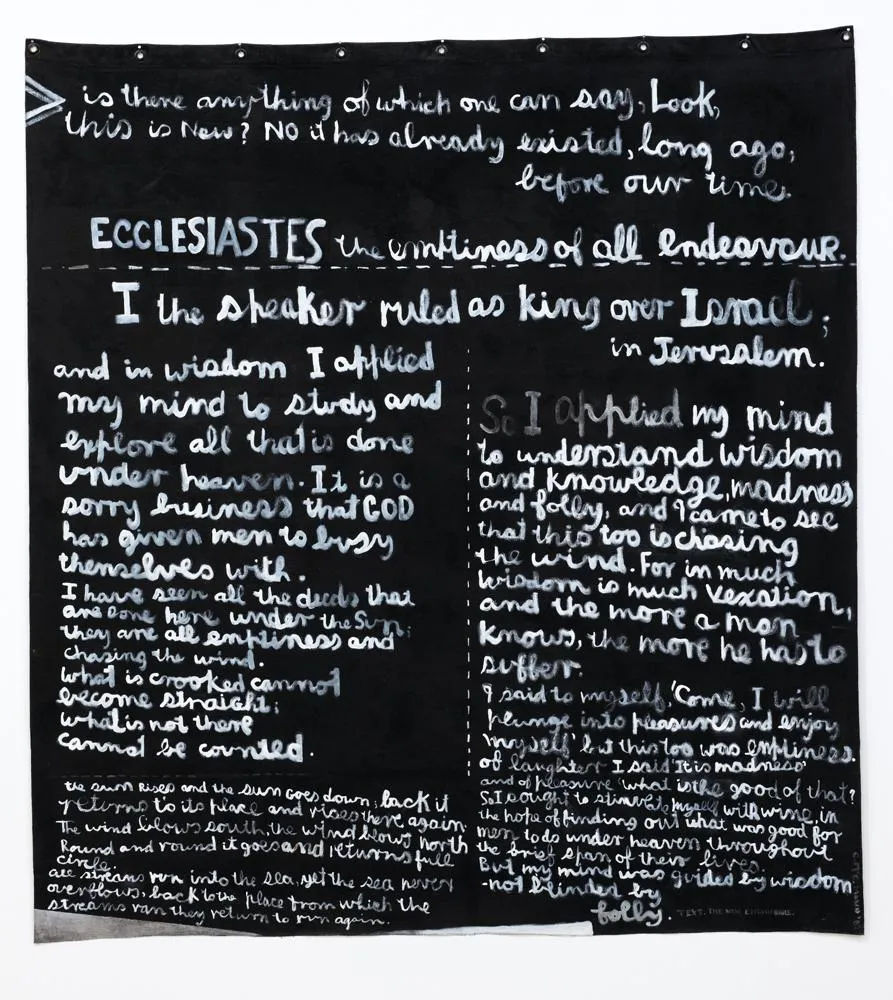 is there anything of which one can say, Look,
this is New? NO it has already existed, long ago,
before our time.
ECCLESIASTES the emptiness of all endeavour.
I the speaker ruled as king over Israel,
in Jerusalem.
and in wisdom I applied
my mind to study and
explore all that is done
under heaven. It is a
sorry business that GOD
has given men to busy
themselves with.
I have seen all the deeds that
are done here under the Sun;
they are all emptiness and
chasing the wind.
what is crooked cannot
become straight;
what is not there
cannot be counted.
the sun rises and the sun goes down; back it
returns to its place and rises there again
The wind blows south, the wind blows north
Round and round it goes and returns full
circle.
all streams run into the sea, yet the sea never
overflows, back to the place from which the
streams ran they return to run again.
So I applied my mind
to understand wisdom
and knowledge, madness
and folly, and I came to see
that this too is chasing
the wind. For in much
wisdom is much vexation,
and the more a man
knows, the more he has to
suffer.
I said to myself, 'Come, I will
plunge into pleasures and enjoy
myself' but this too was emptiness.
of laughter I said 'It is madness'
and of pleasure 'what is the good of that?
So I sought to stimulate myself with wine, in
the hope of finding out what was good for
men to do under heaven throughout
the brief span of their lives.
But my mind was guided by wisdom
-not blinded by
folly.
TEXT. THE NEW ENGLISH BIBLE.